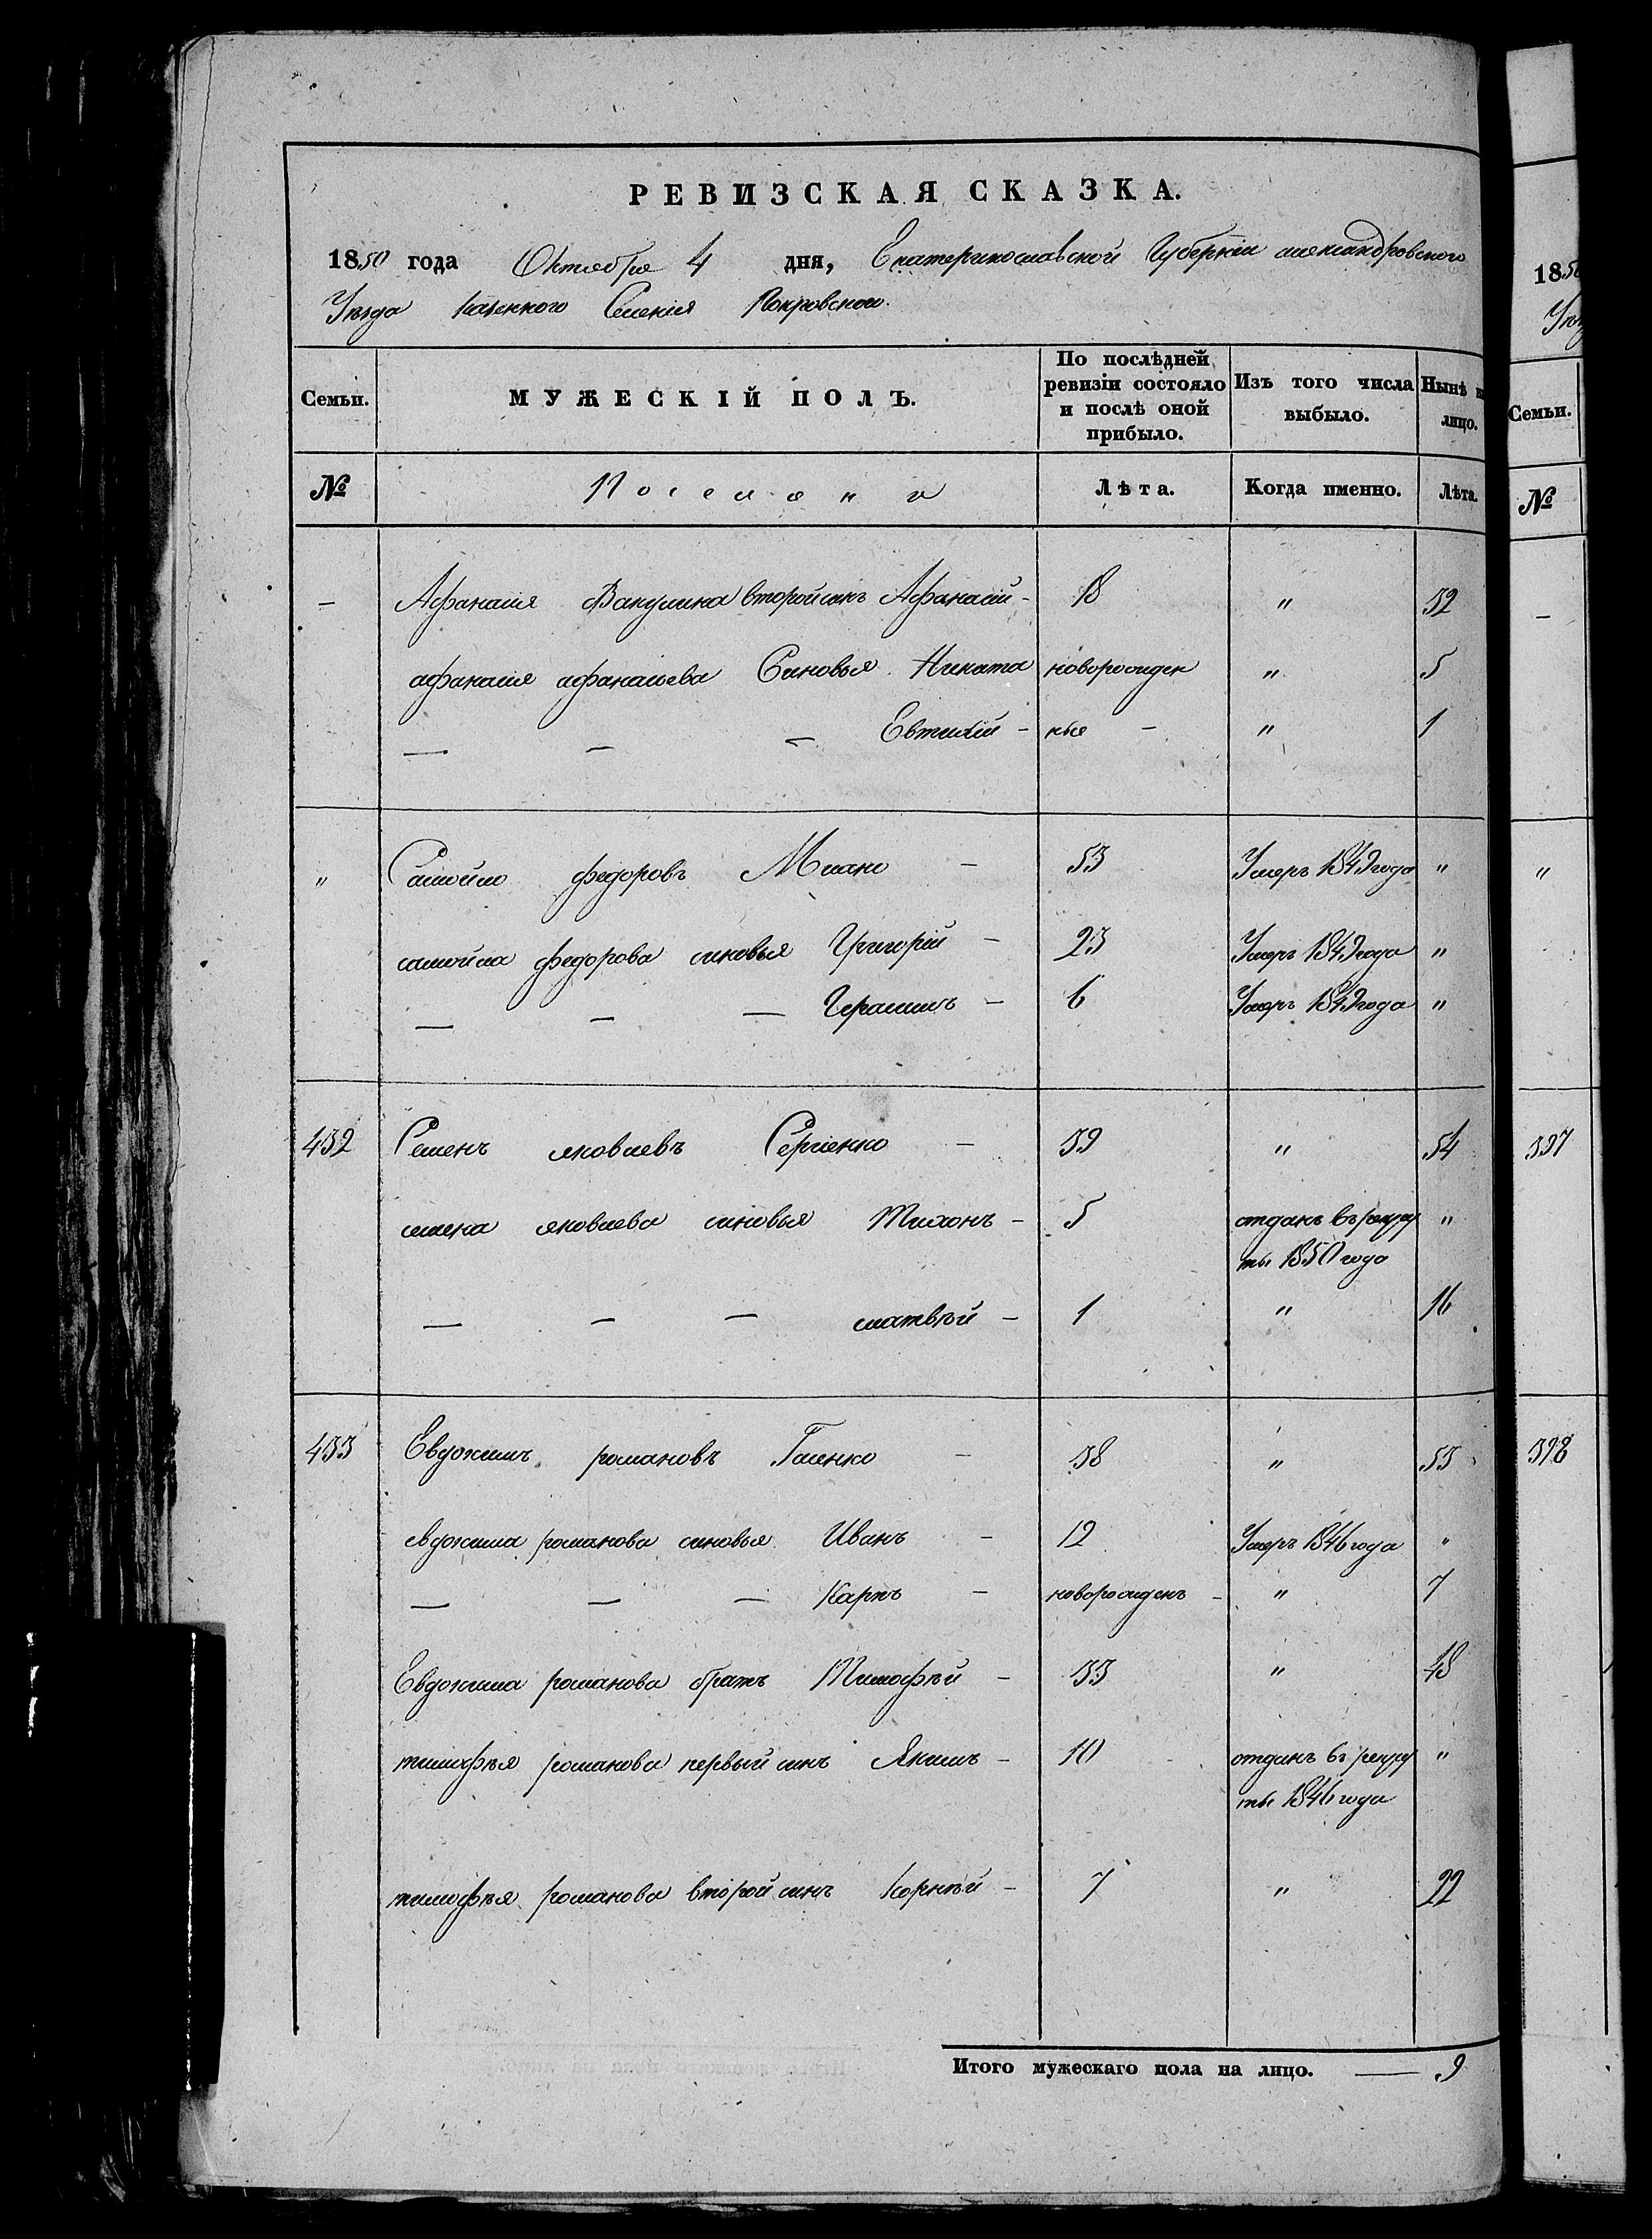 РЕВИЗСКАЯ СКАЗКА.
1850 года Октября 4 дня, Екатеринославской Губернии александровского
Уезда казенного Селения Покровского.
Семьи. МУЖЕСКІЙ ПОЛЪ. По послѣдней ревизіи состояло и послѣ оной прибыло. Изъ того числа выбыло. Нынѣ на лицо.
№ Поселяни Лѣта. Когда именно. Лѣта.
— Афанасия Вакулина второй синъ Афанасий - 18 " 32
афанасия афанасьева Синовья Никита новорожден " 5
— — — Евтихій - ныя - " 1
" Самойло федоровъ - 53 Умеръ 1849 года "
самойла федорова синовья Григорій - 23 Умеръ 1849 года "
— — — Герасимъ - 6 Умеръ 1849 года "
432 Семенъ яковлевъ Сергіенко - 39 " 54
семена яковлева синовья Тихонъ - 5 отданъ въ рекру "
ты 1850 года
— — — матвѣй - 1 " 16
433 Евдокимъ романовъ - 38 " 53
евдокима романова синовья Иванъ - 12 Умеръ 1846 года "
— — — Карпъ - новорожденъ - " 7
Евдокима романова братъ Тимофѣй - 33 " 48
тимофѣя романова первый синъ Якимъ - 10 отданъ въ рекру "
ты 1846 года
тимофѣя романова второй синъ Корнѣй - 7 " 22
Итого мужескаго пола на лицо. — 9
1850
Семьи.
№
—
"
397
398